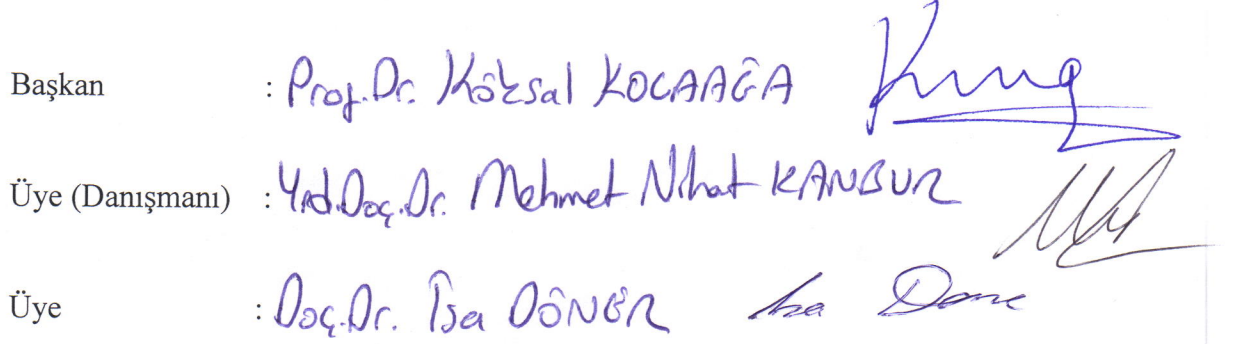 Başkan : Prof. Dr. Köksal KOCAAĞA
Üye (Danışmanı) : Yrd. Doç. Dr. Mehmet Nihat KANBUR
Üye : Doç. Dr. İsa DÖNER